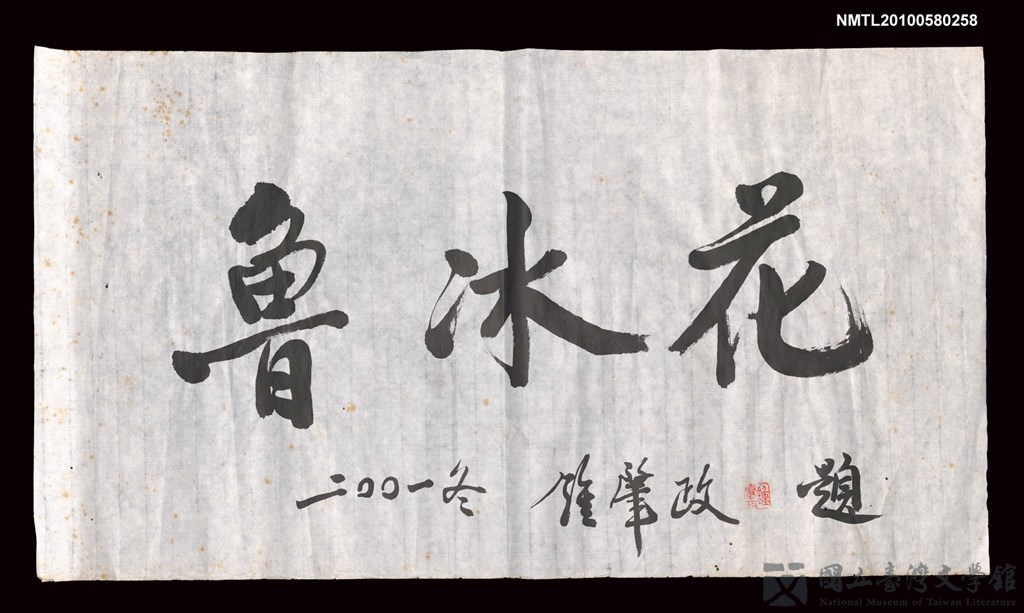 NMTL20100580258
魯冰花
二00一冬 鍾肇政 題
國立臺灣文學館
National Museum of Taiwan Literature